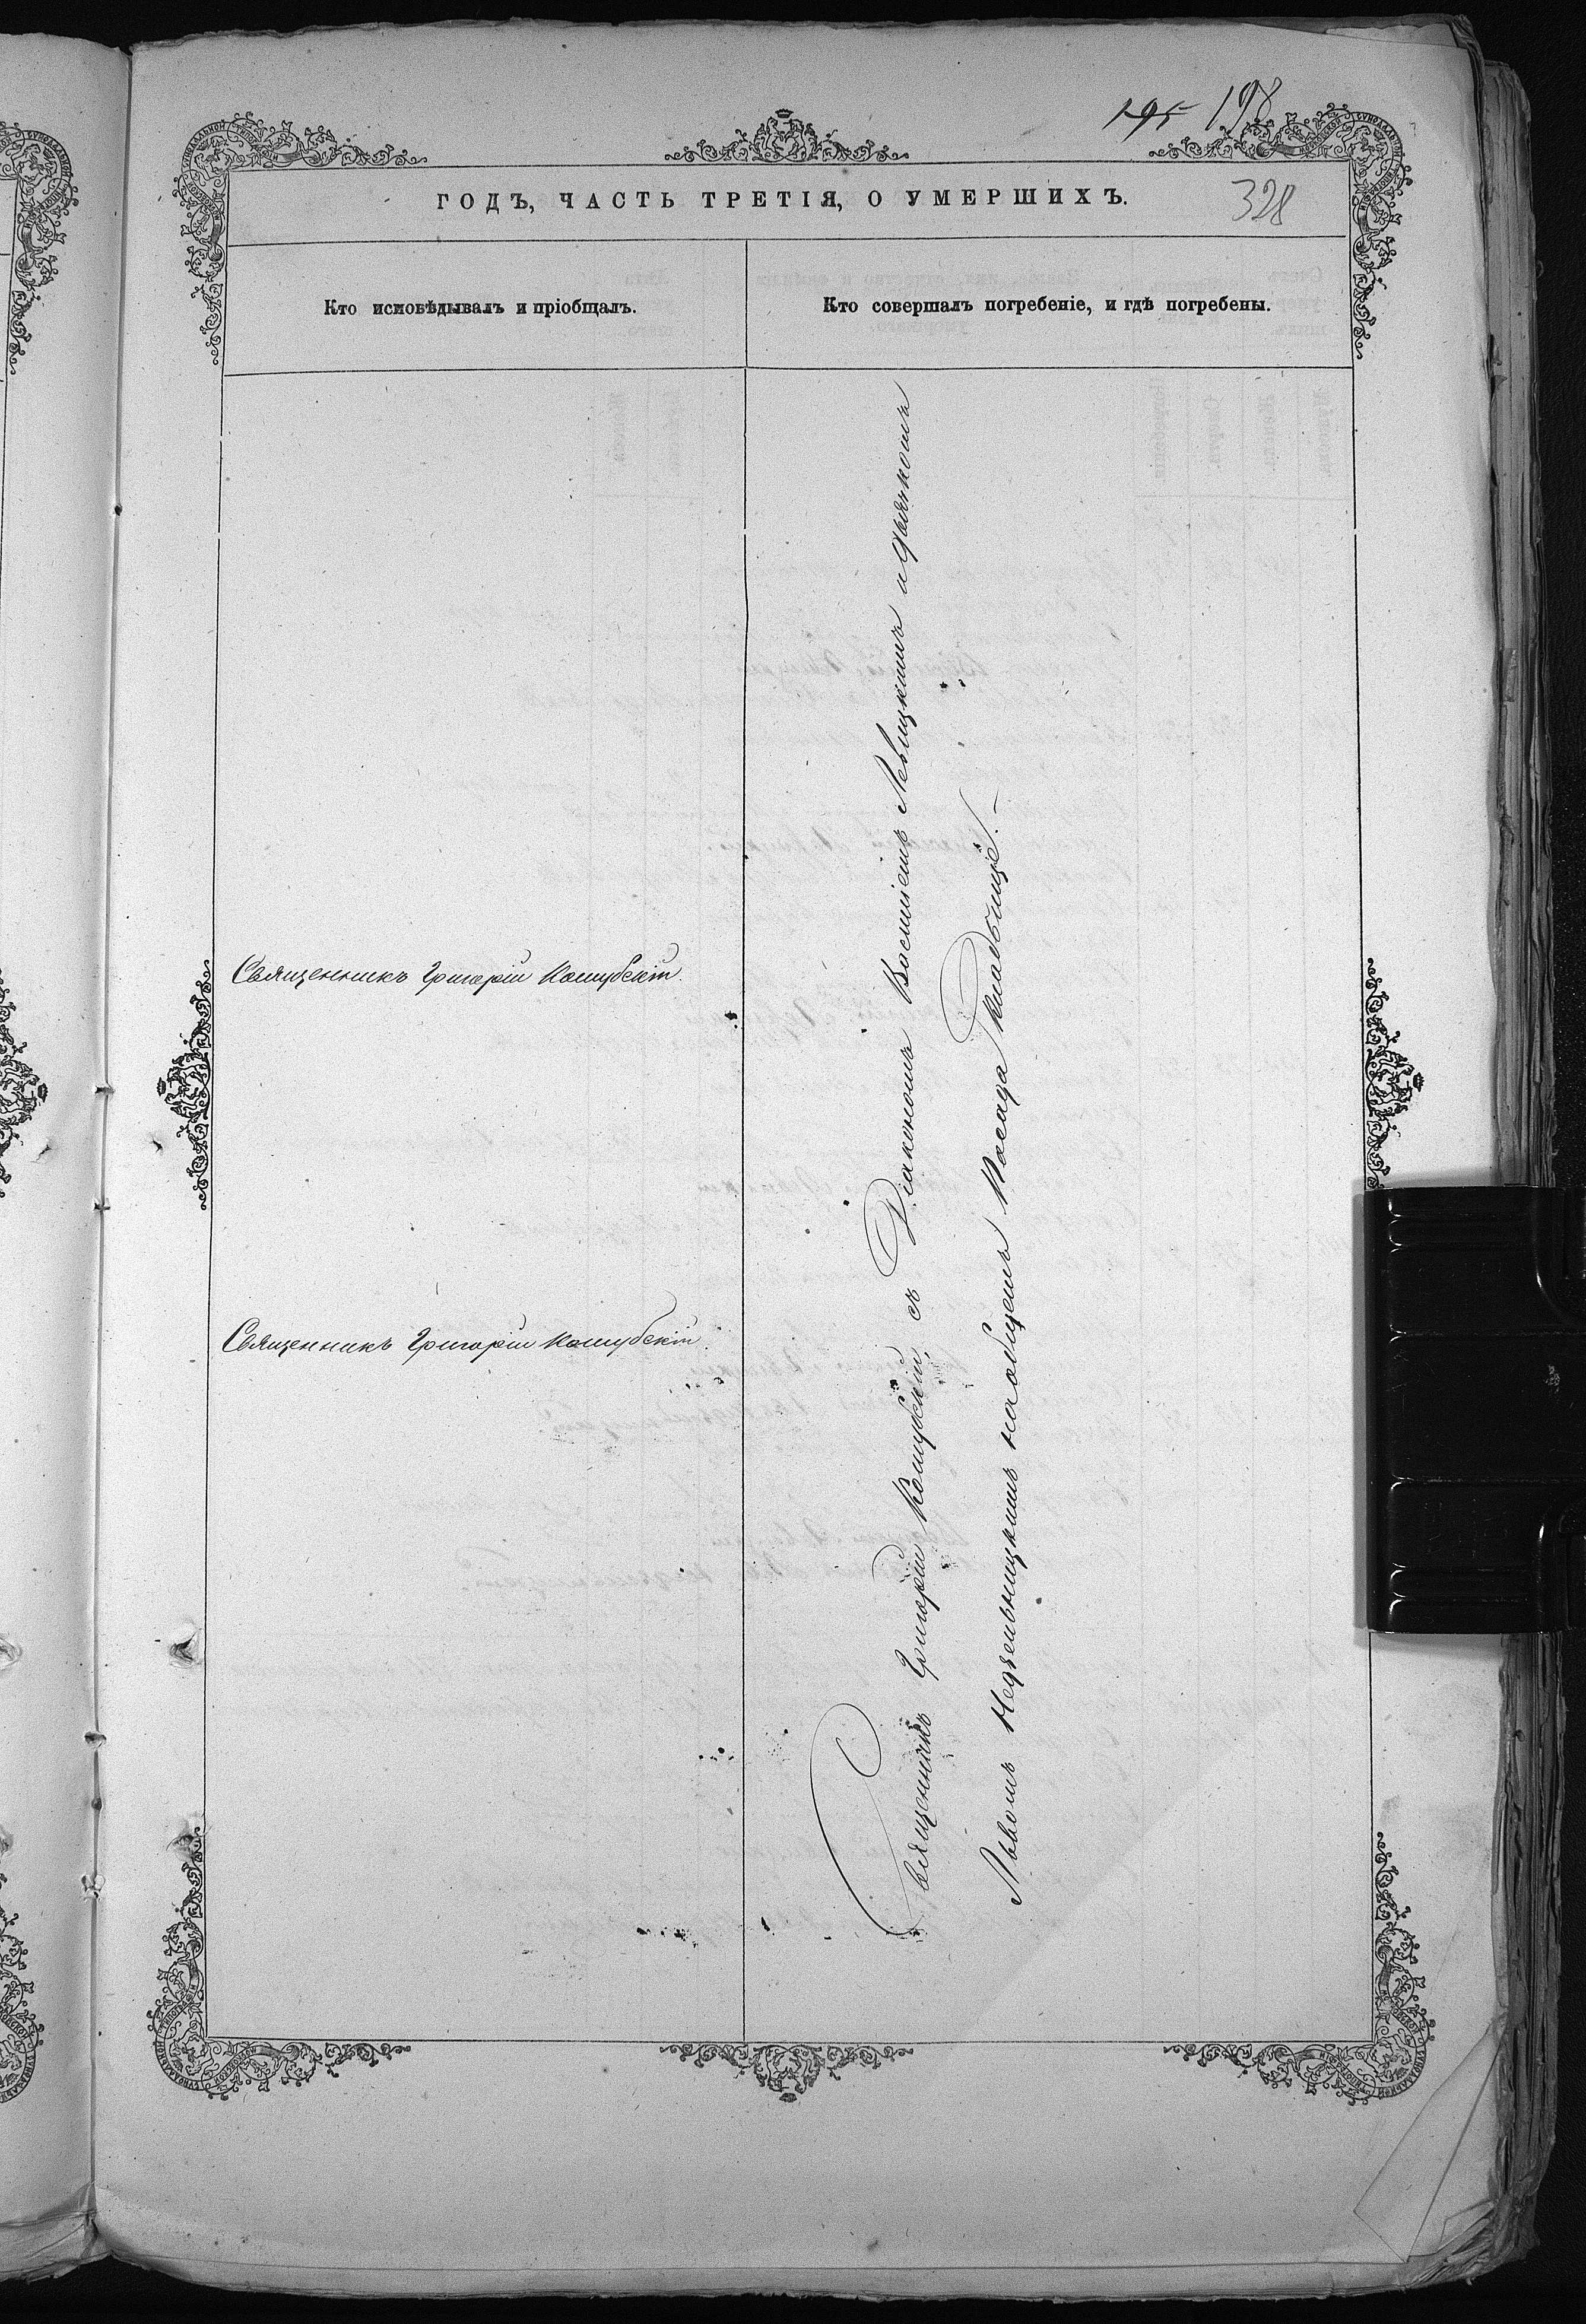 195 198
ГОДЪ, ЧАСТЬ ТРЕТІЯ, О УМЕРШИХЪ.
328
Кто исповѣдывалъ и пріобщалъ.
Кто совершалъ погребеніе, и гдѣ погребены.
Священникъ Григорій Кошубскій
Священникъ Григорій Кошубскій.
Священникъ Григорій Кошубскій, съ Діакономъ Василіемъ Левицкимъ и дьячкомъ
Львомъ Недзельницкимъ на общемъ Посада Кладбищѣ.